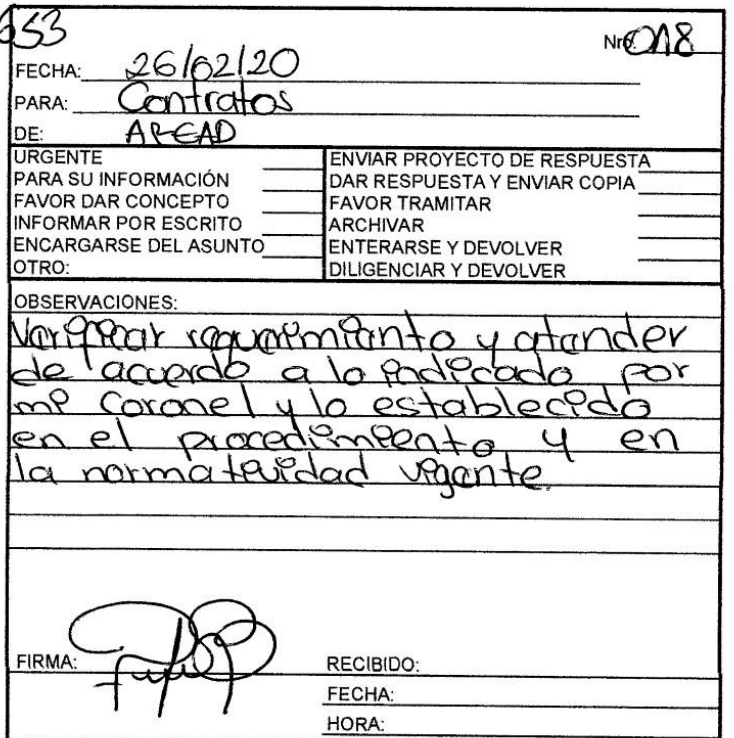 053
Nro. 018
FECHA: 26/02/20
PARA: Contratos
DE: AREAD
URGENTE
PARA SU INFORMACIÓN
FAVOR DAR CONCEPTO
INFORMAR POR ESCRITO
ENCARGARSE DEL ASUNTO
OTRO:
ENVIAR PROYECTO DE RESPUESTA
DAR RESPUESTA Y ENVIAR COPIA
FAVOR TRAMITAR
ARCHIVAR
ENTERARSE Y DEVOLVER
DILIGENCIAR Y DEVOLVER
OBSERVACIONES:
Verificar requerimiento y atender
de acuerdo a lo indicado por
mi Coronel y lo establecido
en el procedimiento y en
la normatividad vigente.
FIRMA:
RECIBIDO:
FECHA:
HORA: